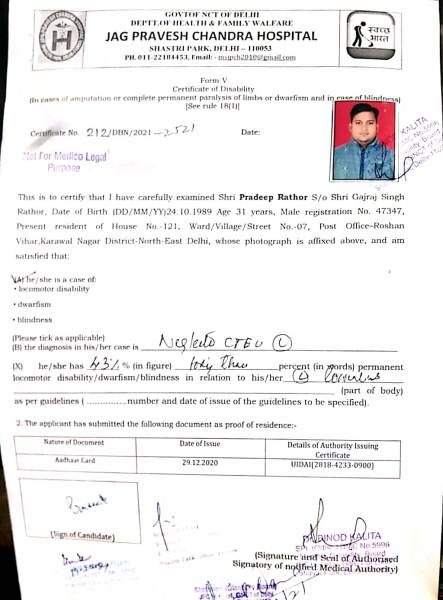 GOVT OF NCT OF DELHI
DEPTT.OF HEALTH & FAMILY WALFARE
JAG PRAVESH CHANDRA HOSPITAL
SHASTRI PARK, DELHI – 110053
PH.011-22184453, Email: - msjpch2010@gmail.com
स्वच्छ
भारत
Form-V
Certificate of Disability
(In cases of amputation or complete permanent paralysis of limbs or dwarfism and in case of blindness)
[See rule 18(1)]
Certificate No. 212/DBN/2021-2521 Date:
Not For Medico Legal
Purpose
KALITA
This is to certify that I have carefully examined Shri Pradeep Rathor S/o Shri Gajraj Singh
Rathor, Date of Birth (DD/MM/YY)24.10.1989 Age 31 years, Male registration No. 47347,
Present resident of House No.-121, Ward/Village/Street No.-07, Post Office-Roshan
Vihar,Karawal Nagar District-North-East Delhi, whose photograph is affixed above, and am
satisfied that:
he/she is a case of:
• locomotor disability
• dwarfism
• blindness
(Please tick as applicable)
(B) the diagnosis in his/her case is CTEV (L)
(X) he/she has 43% % (in figure) percent (in words) permanent
locomotor disability/dwarfism/blindness in relation to his/her (L)
(part of body)
as per guidelines ( ..............number and date of issue of the guidelines to be specified).
2. The applicant has submitted the following document as proof of residence:-
Nature of Document Date of Issue Details of Authority Issuing Certificate
Aadhaar Card 29.12.2020 UIDAI(2818-4233-0900)
(Sign of Candidate)
BINOD KALITA
(Signature and Seal of Authorised
Signatory of notified Medical Authority)